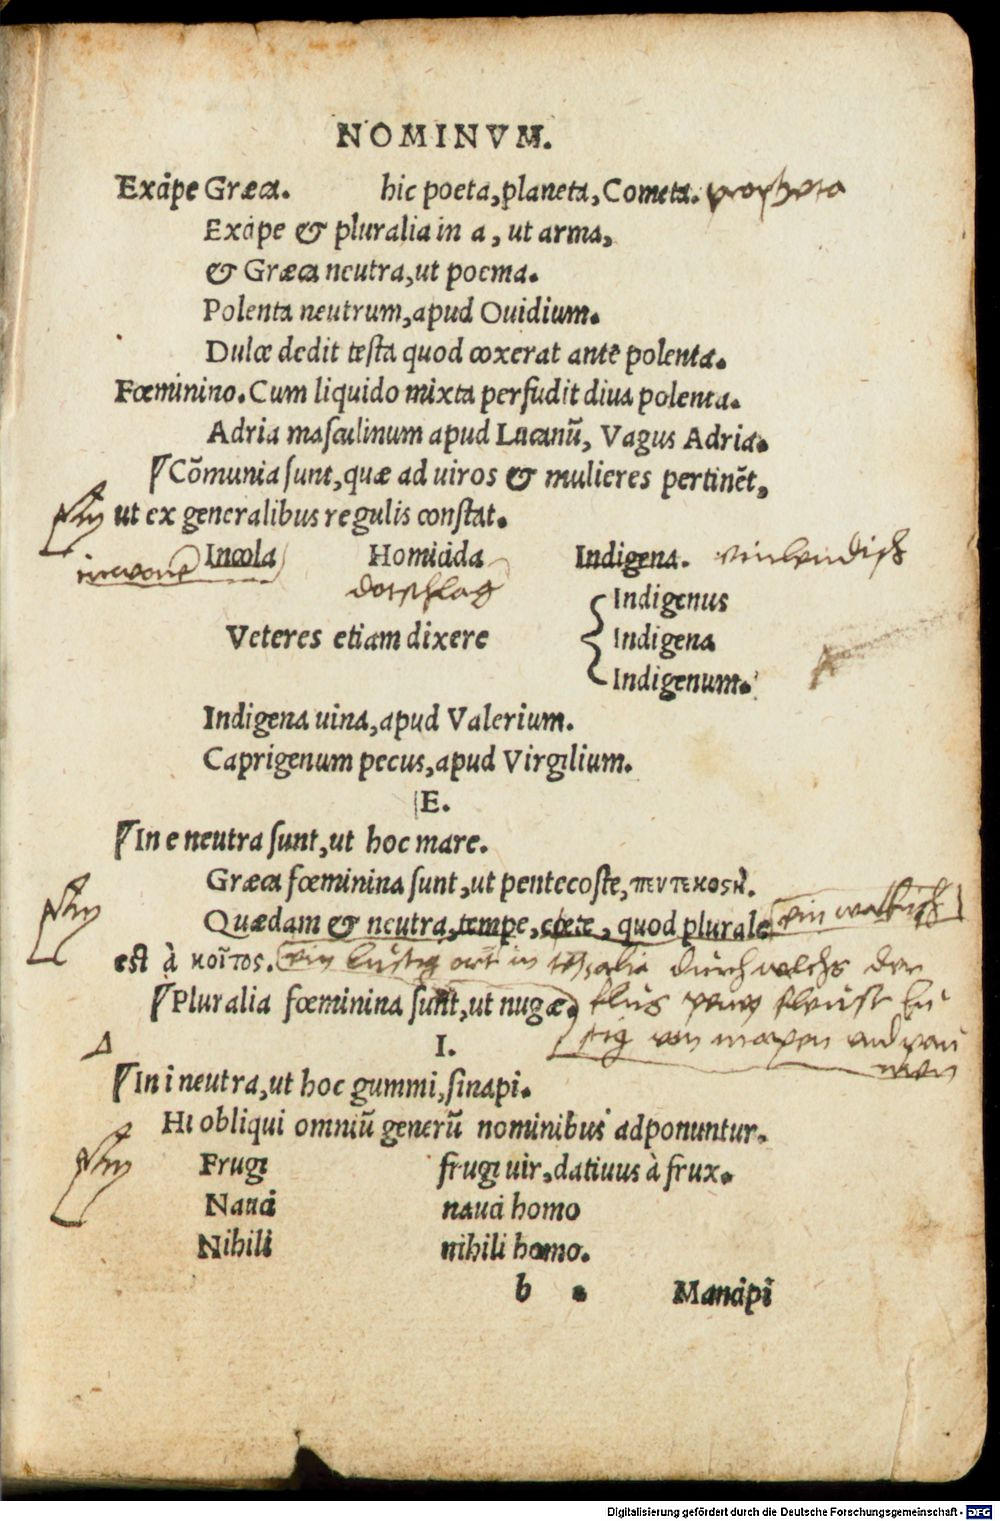 NOMINVM.
Excipe Græca. hic poeta, planeta, Cometa. propheta
Excipe & pluralia in a, ut arma,
& Græca neutra, ut poema.
Polenta neutrum, apud Ouidium.
Dulce dedit testa quod coxerat ante polenta.
Fœminino. Cum liquido mixta perfudit diua polenta.
Adria masculinum apud Lucanū, Vagus Adria.
Cōmunia sunt, quæ ad uiros & mulieres pertinēt,
ut ex generalibus regulis constat.
Incola Homicida Indigena.
dotschlag
Indigenus
Veteres etiam dixere Indigena
Indigenum.
Indigena uina, apud Valerium.
Caprigenum pecus, apud Virgilium.
E.
In e neutra sunt, ut hoc mare.
Græca fœminina sunt, ut pentecoste, πεντεκοςή.
Quædam & neutra, tempe, cœte, quod plurale
est à κοῖτος. ein lustig ort in durch welchs der
Pluralia fœminina sunt, ut nugæ.
I.
In i neutra, ut hoc gummi, sinapi.
Hi obliqui omniū generū nominibus adponuntur.
Frugi frugi uir, datiuus à frux.
Nauci nauci homo
Nihili nihili homo.
b Mancipi
Digitalisierung gefördert durch die Deutsche Forschungsgemeinschaft - DFG